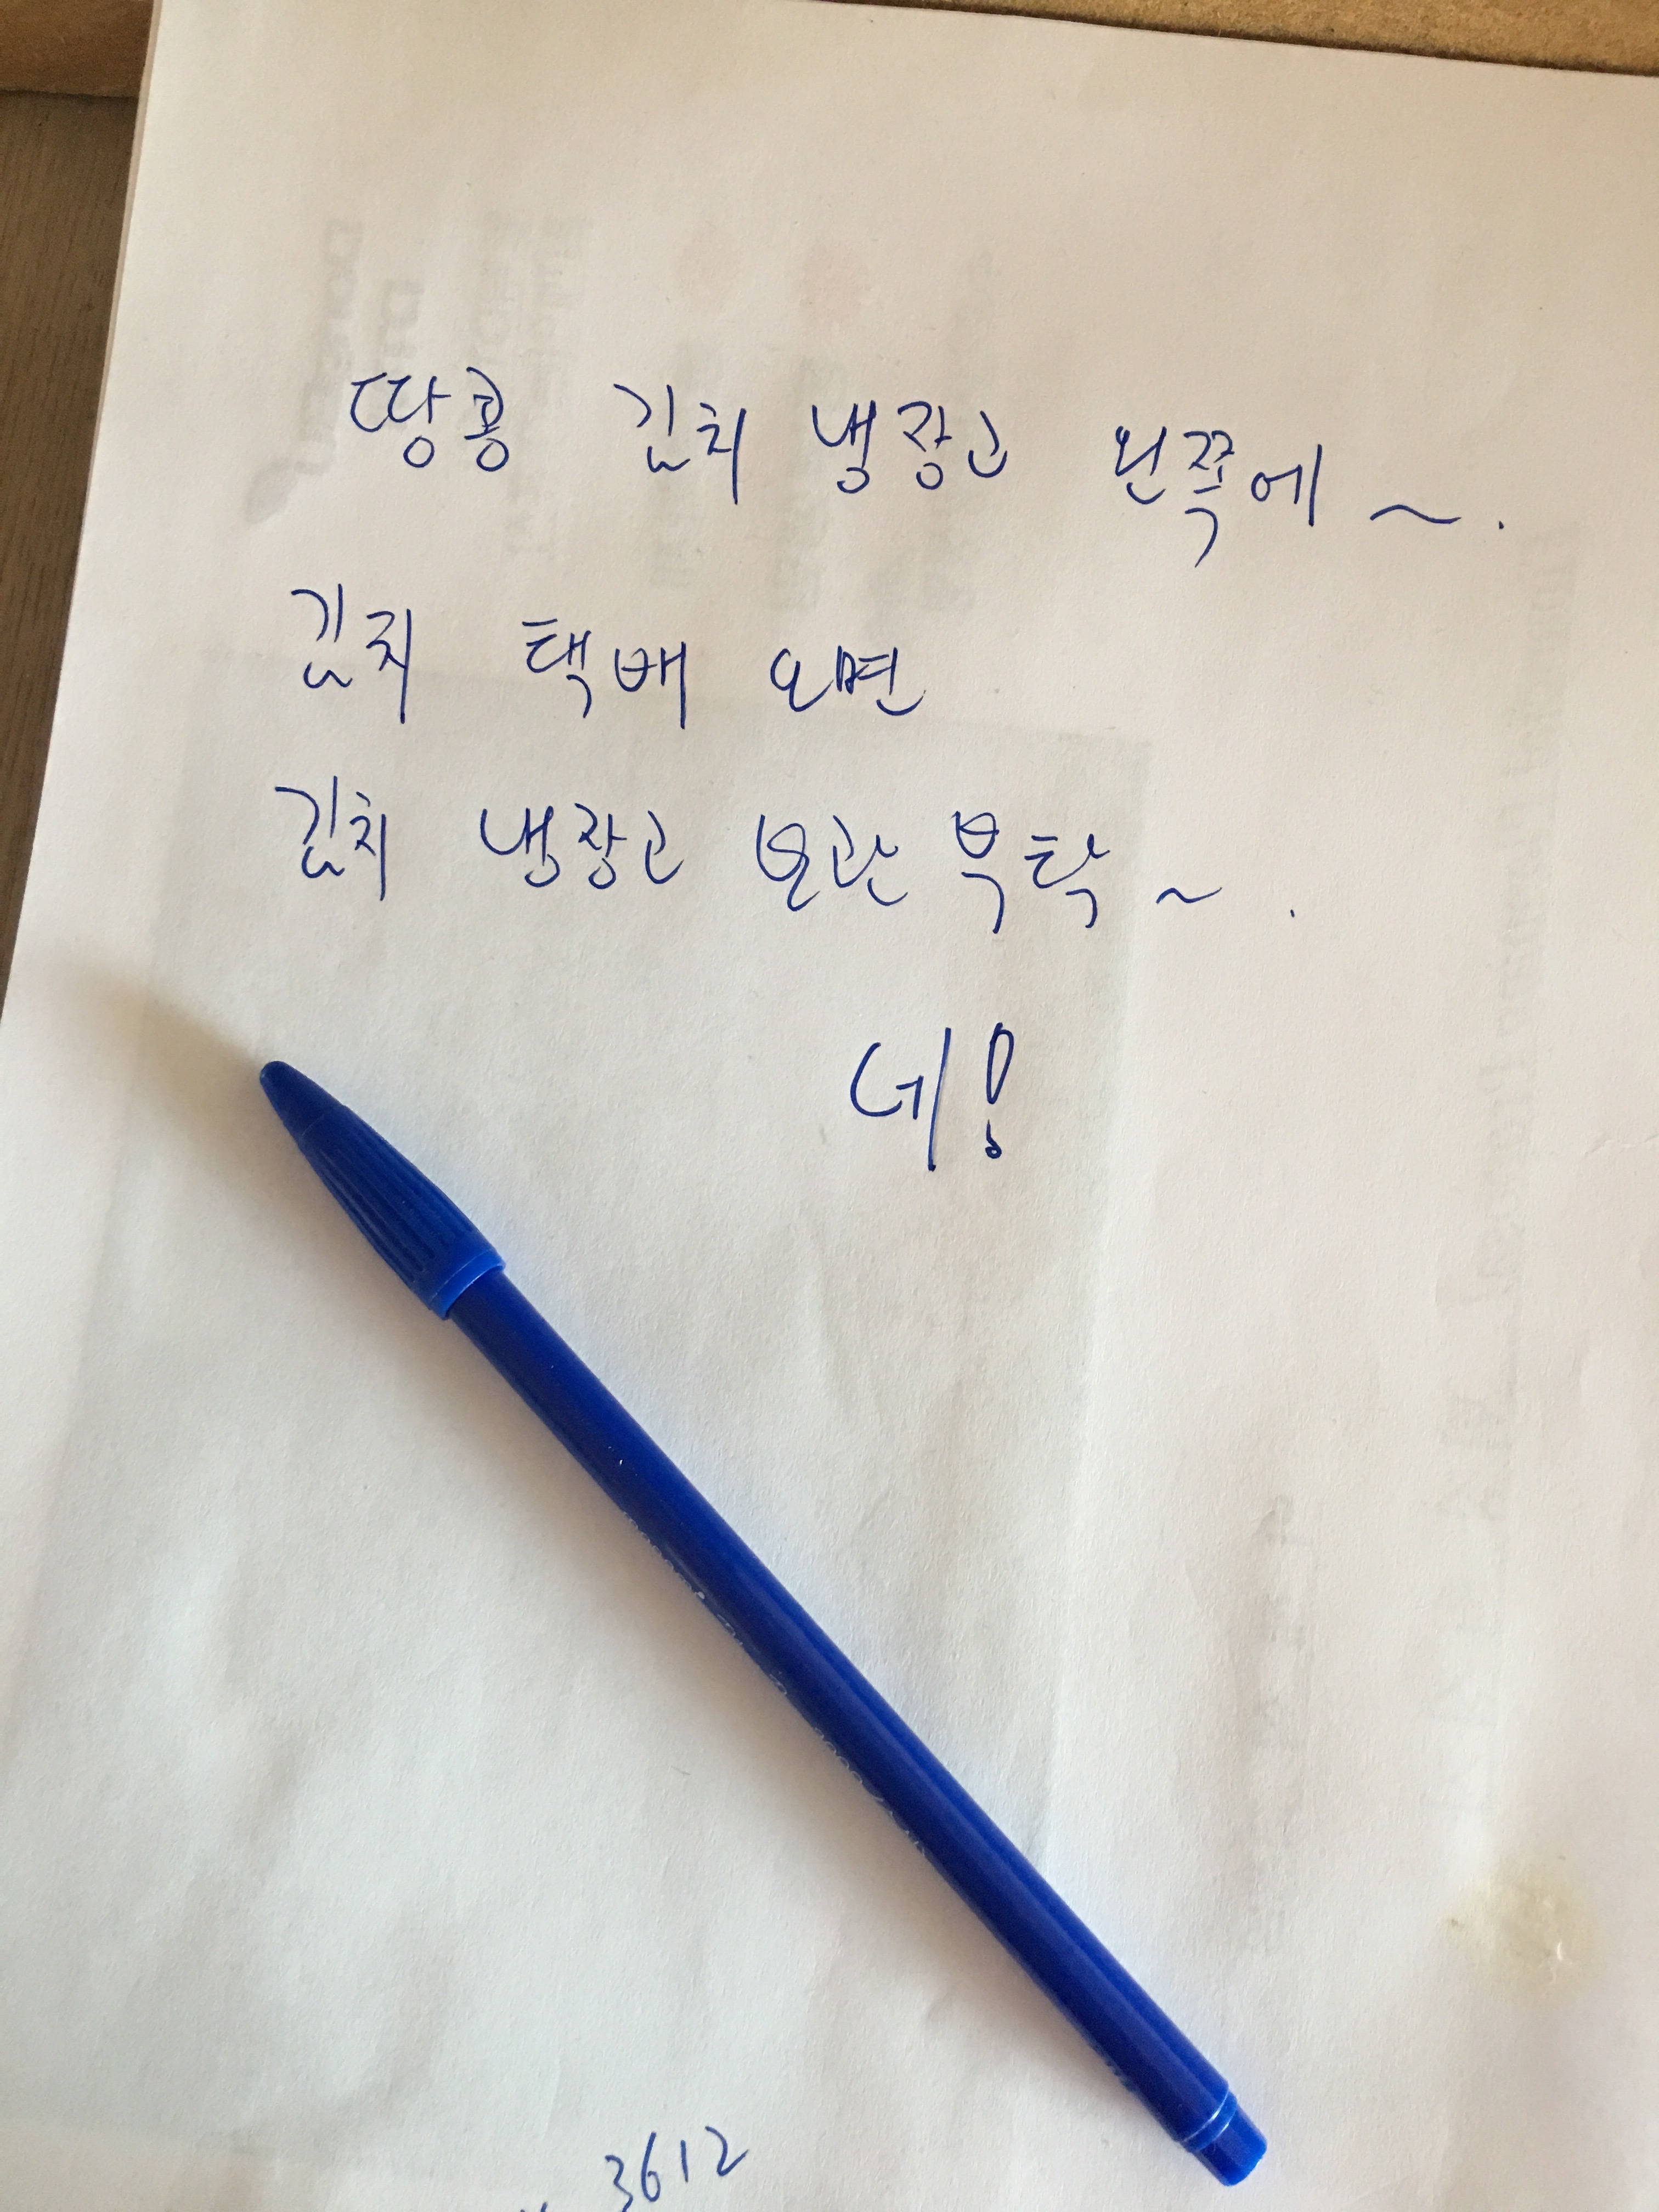 땅콩 김치 냉장고 왼쪽에~.
김치 택배 오면
김치 냉장고 보관 부탁~.
네!
3612